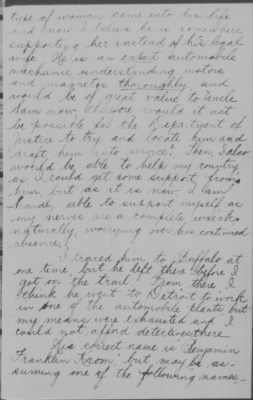 type of woman came into his life
and know I believe he is somewhere
supporting her instead of his legal
wife. He is an expert automobile
mechanic understanding motors
and magnetos thoroughly and
would be of great value to Uncle
Sam now. Therefore would it not
be possible for the Department of
Justice to try and locate him and
draft him into service? Then, I also
would be able to help my country
as I could get some support from
him, but as it is now I am
hardly able to support myself as
my nerves are a complete wreck
naturally, worrying over his continued
absence.
I traced him to Buffalo at
one time, but he left there before I
got on the trail. From there I
think he went to Detroit to work
in one of the automobile plants but
my means were exhausted and I
could not afford detectives there.
His correct name is "Benjamin
Franklin Krom" but may be as-
suming one of the following names-